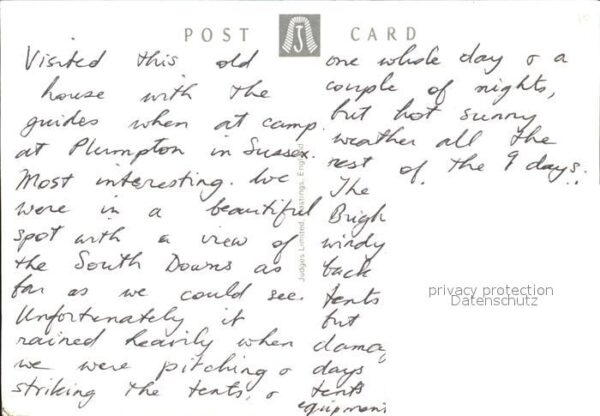 POST CARD
Visited this old
house with the
guides when at camp.
at Plumpton in Sussex.
Most interesting. We
were in a beautiful
spot with a view of
the South Downs as
far as we could see.
Unfortunately it
rained heavily when
we were pitching &
striking the tents, &
one whole day & a
couple of nights,
but hot sunny
weather all the
rest of the 9 days.
The
Brigh
windy
back
tents
but
damag
days
tents
equipment
Judges Limited, Hastings, England
privacy protection
Datenschutz